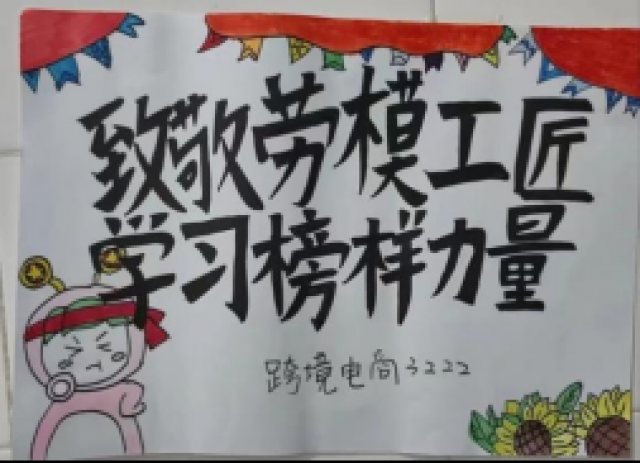 致敬劳模工匠
学习榜样力量
跨境电商3222